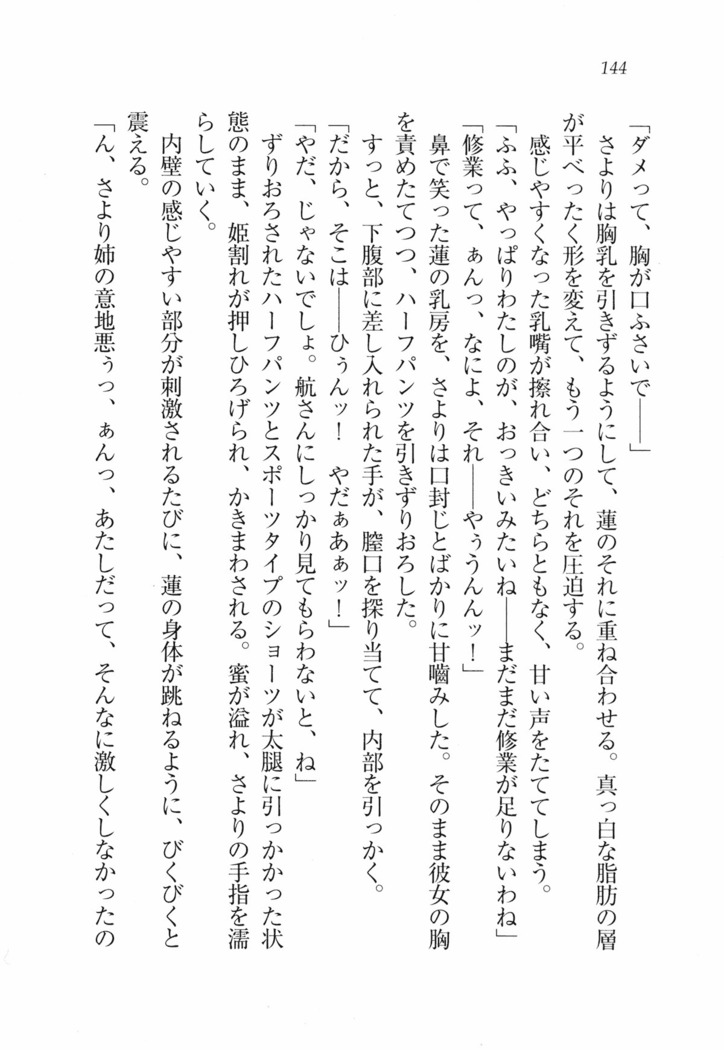 144
「ダメって、胸が口ふさいで――」
さよりは胸乳を引きずるようにして、蓮のそれに重ね合わせる。真っ白な脂肪の層
が平べったく形を変えて、もう一つのそれを圧迫する。
感じやすくなった乳嘴が擦れ合い、どちらともなく、甘い声をたててしまう。
「ふふ、やっぱりわたしのが、おっきいみたいね――まだまだ修業が足りないわね」
「修業って、ぁんっ、なによ、それ――やぅうんんッ！」
鼻で笑った蓮の乳房を、さよりは口封じとばかりに甘噛みした。そのまま彼女の胸
を責めたてつつ、ハーフパンツを引きずりおろした。
すっと、下腹部に差し入れられた手が、膣口を探り当てて、内部を引っかく。
「だから、そこは――ひぅんッ！　やだぁあぁッ！」
「やだ、じゃないでしょ。航さんにしっかり見てもらわないと、ね」
ずりおろされたハーフパンツとスポーツタイプのショーツが太腿に引っかかった状
態のまま、姫割れが押しひろげられ、かきまわされる。蜜が溢れ、さよりの手指を濡
らしていく。
内壁の感じやすい部分が刺激されるたびに、蓮の身体が跳ねるように、びくびくと
震える。
「ん、さより姉の意地悪ぅっ、ぁんっ、あたしだって、そんなに激しくしなかったの